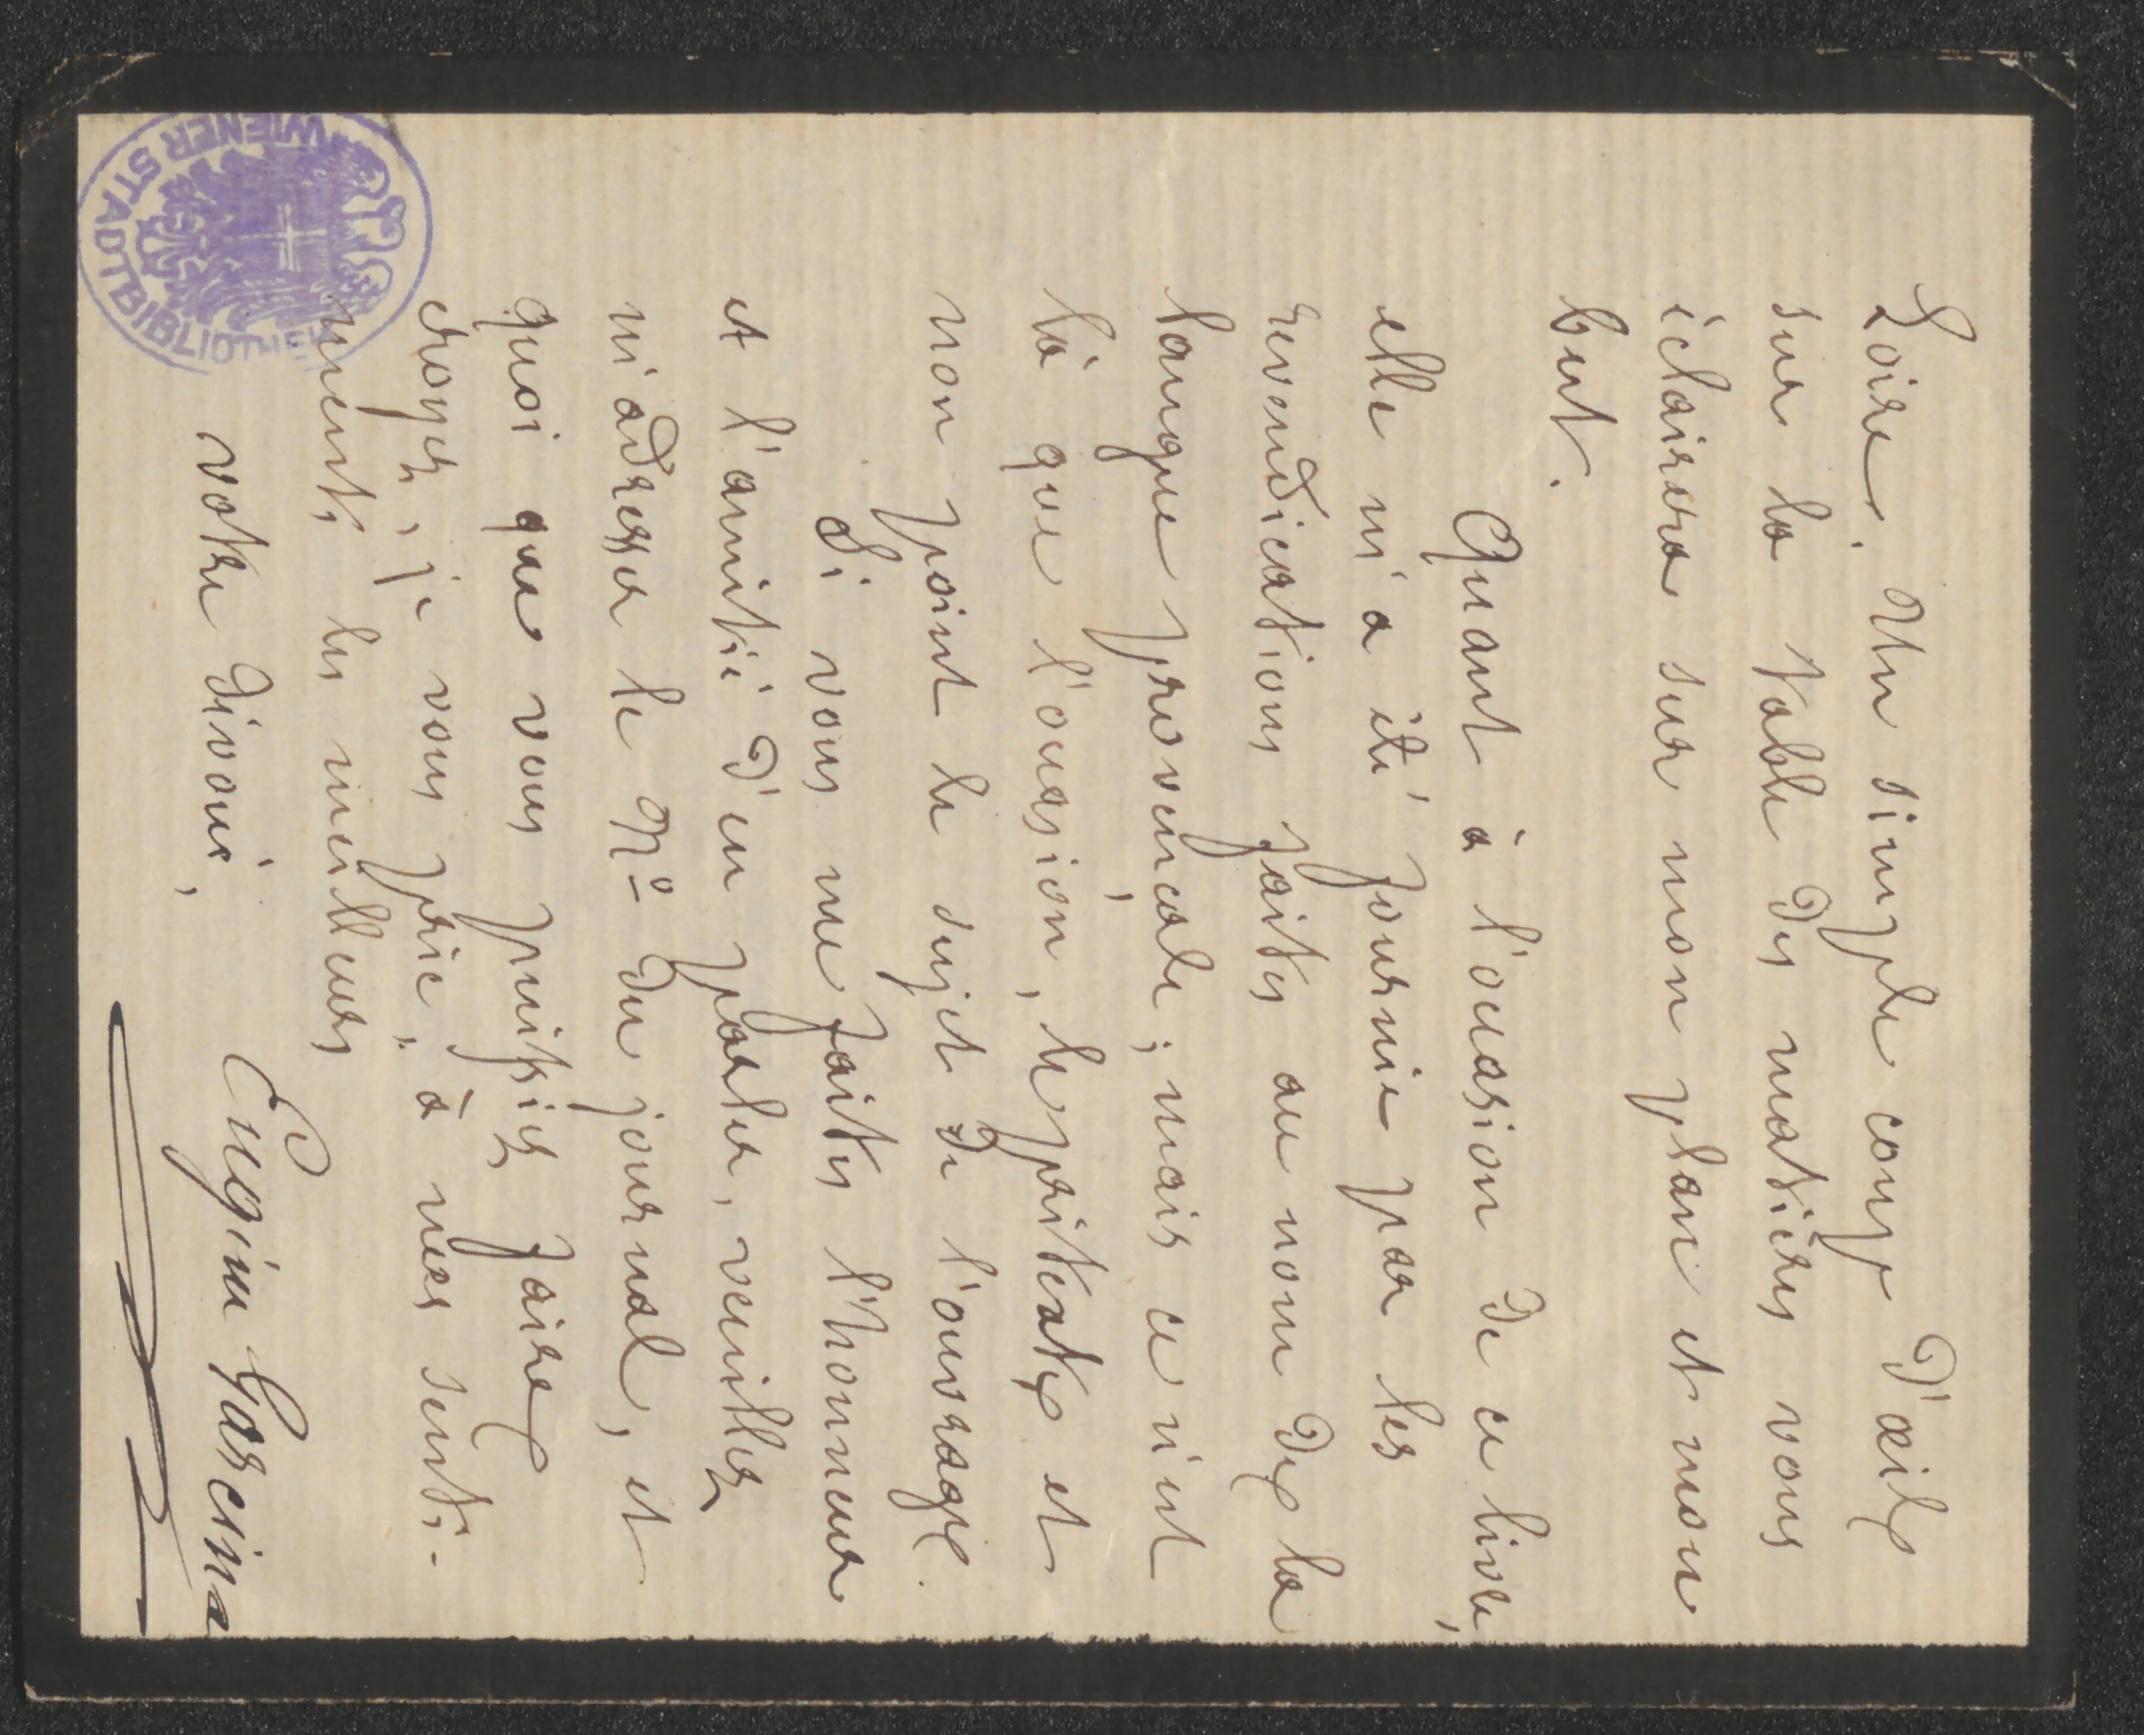 Loire. Un simple coup d'œil
sur la table des matières vous
éclairera sur mon plan et mon
but.
Quant à l'occasion de ce livre,
elle m'a été fournie par les
revendications faites au nom de la
langue provençale; mais ce n'est
là que l'occasion, le prétexte et
non point le sujet de l'ouvrage.
Si vous me faites l'honneur
et l'amitié d'en parler, veuillez
m'adresser le No du journal, et
quoi que vous puissiez faire
croyez, je vous prie, à mes senti-
ments les meilleurs
votre dévoué,
Eugène Garcin
WIENER STADTBIBLIOTHEK